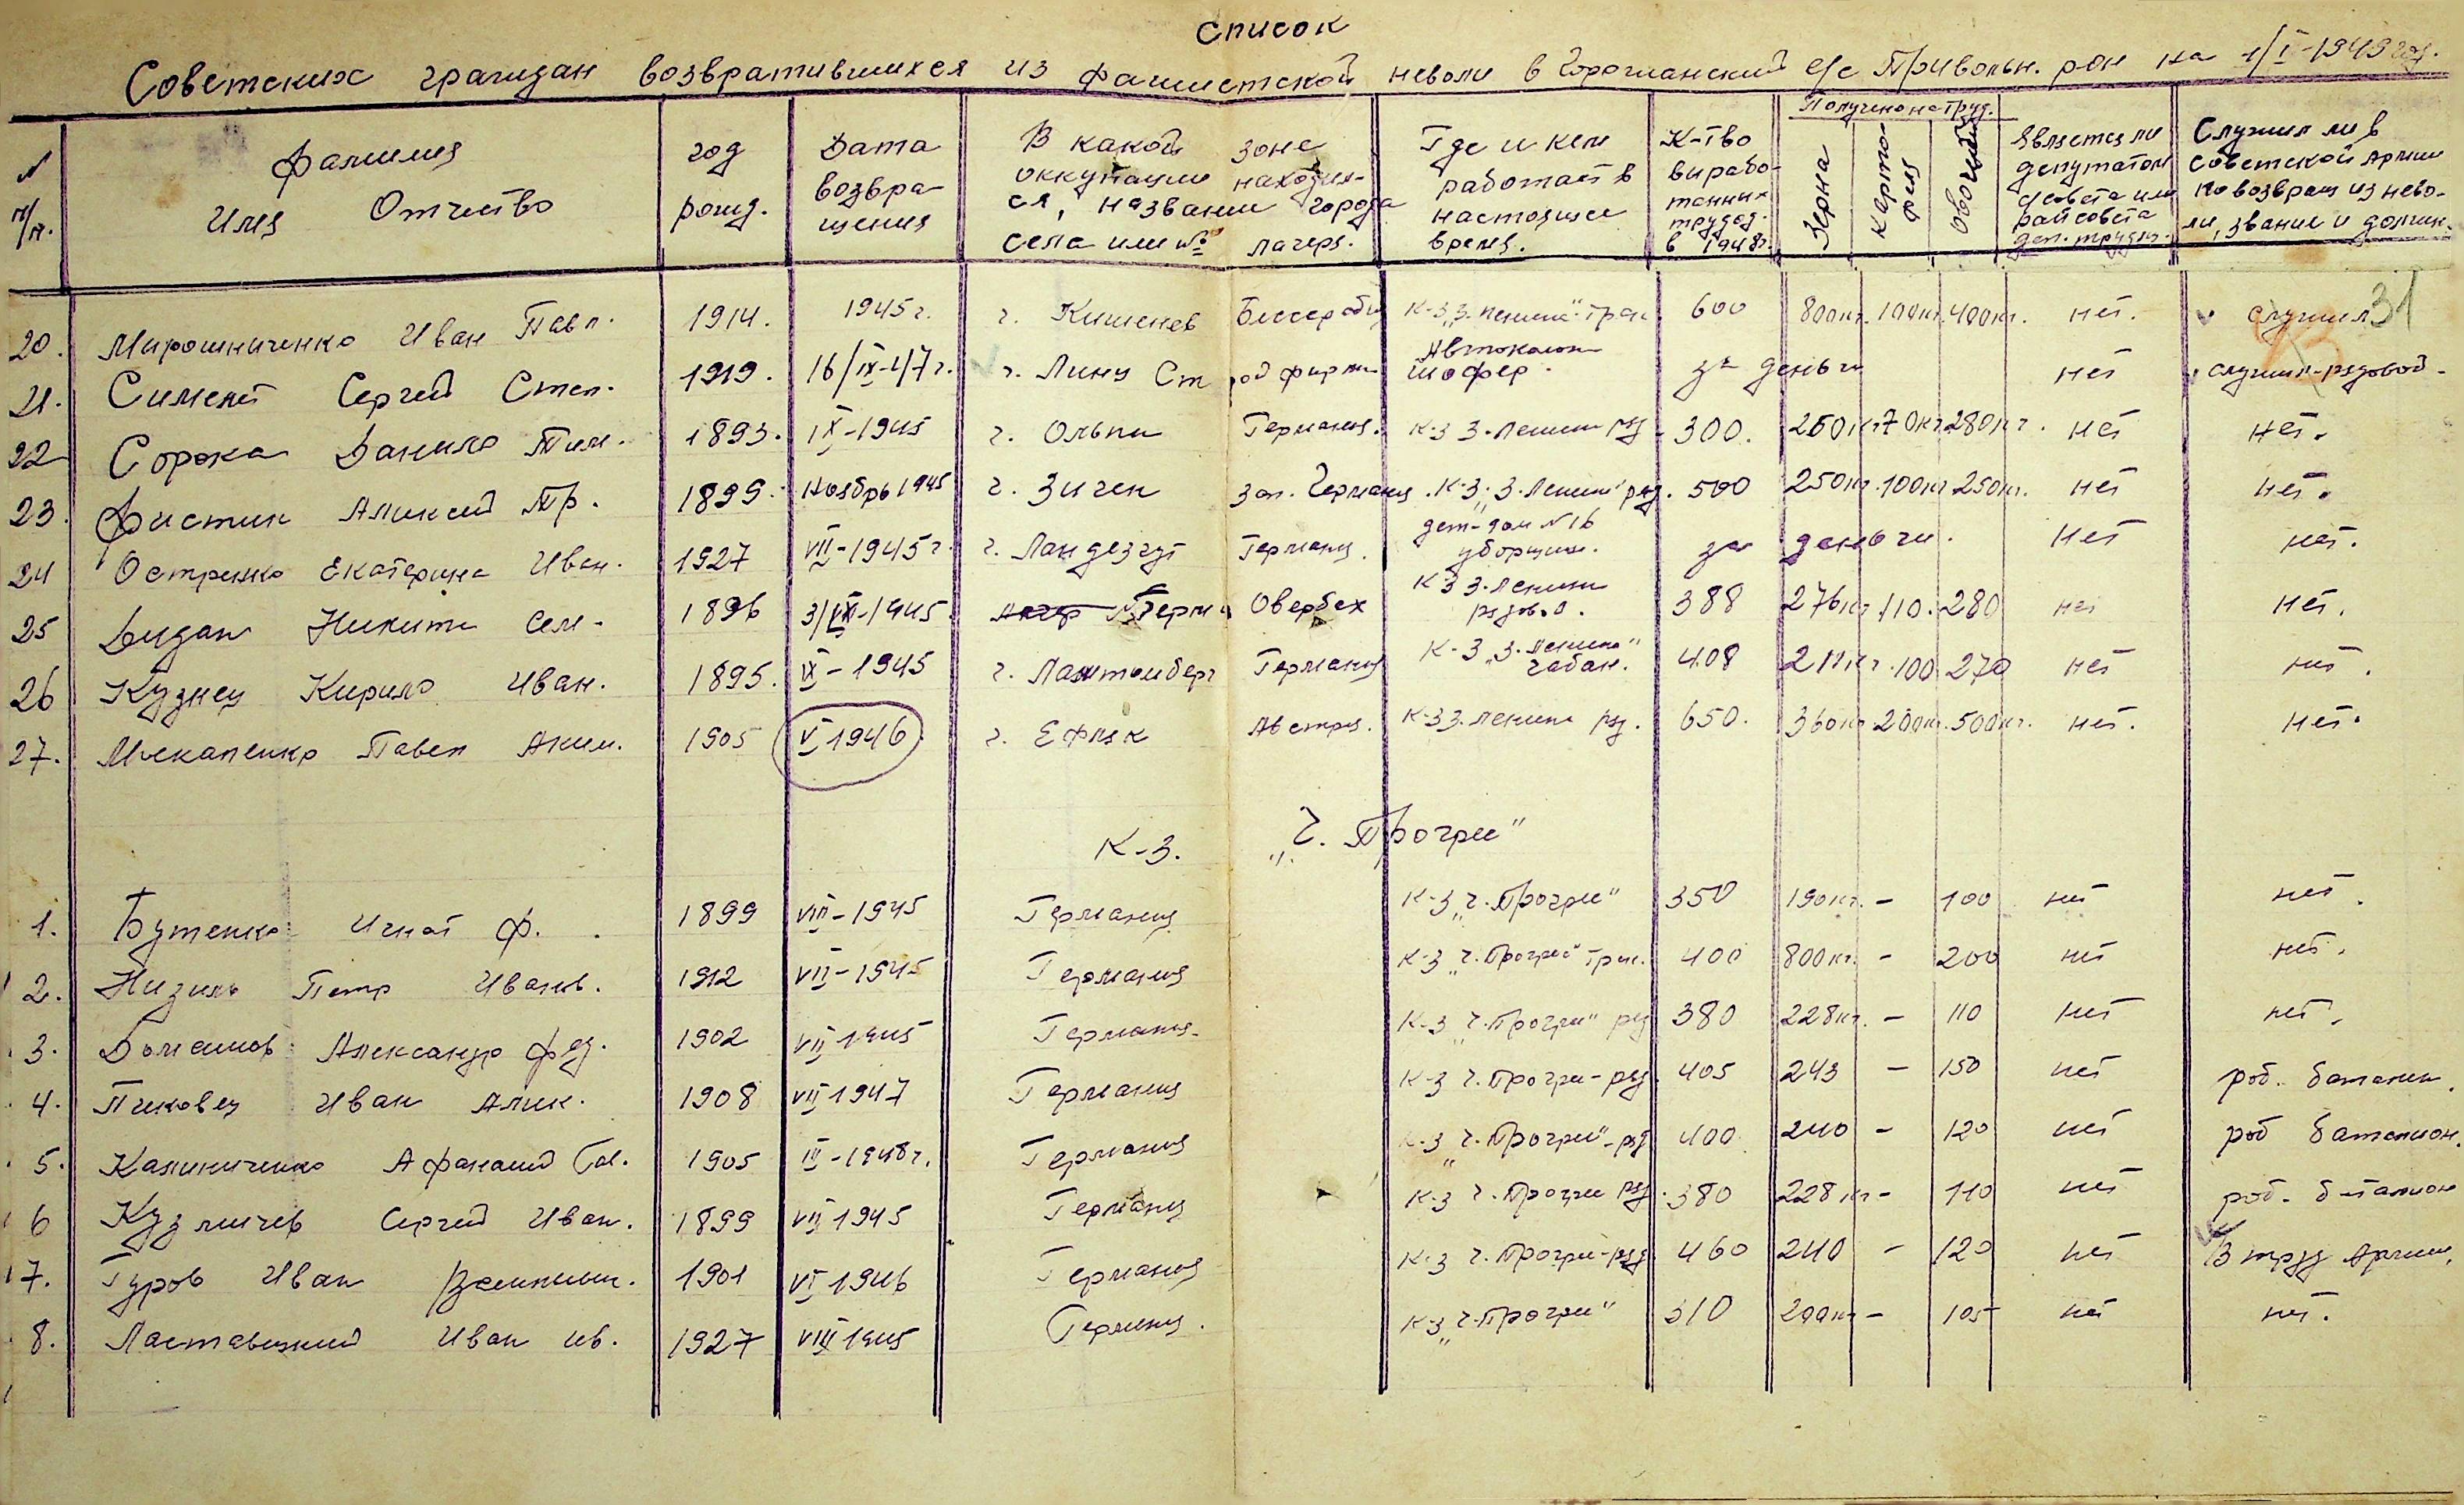 Список
Советских граждан возвратившихся из фашистской неволи в с/с Привольн. рон на 1/I-1949 год.
№ п/п.
Фамилия Имя Отчество
год рожд.
Дата возвращения
В какой зоне оккупации находился, название города села или № лагеря.
Где и кем работает в настоящее время.
К-тво выработанних трудод. в 1948г.
Получено на труд.
Зерна
картофеля
Овощей
Является ли депутатом с/совета или райсовета деп. трудящ.
Служил ли в советской армии по возвращ из неволи, звание и должн.
31
20. Мирошниченко Иван Павл. 1914. 1945г. г. Кишенев К-з "З. Ленина" трак. 600 800кг. 100кг. 400кг. нет. служил
21. Симент Сергей Степ. 1919. 16/IX-47г. г. Линц шофер. за деньги нет служил-рядовой.
22 Сорока Данило Тим. 1893. IX-1945 г. Ольпи Германия. К-з З. Ленина ряд. 300. 260кг. 70кг. 280кг. нет нет.
23. Фистин Аликсей Пр. 1899. Ноябрь 1945 г. Зиген Зап. Германия. К-з "З. Ленина" ряд. 500 250кг. 100кг. 250кг. нет нет.
24 Остренко Екатерина Иван. 1927 VII-1945г. г. Ландезгут Германия. дет-дом №16 уборщик. за деньги. Нет нет.
25 Дидан Никита Сем. 1896 Овербех К-з З. Ленина рядов. 388 276кг. 110. 280 нет нет.
26 Кузнец Кирило Иван. 1895. IX-1945 Германия К-з "З. Ленина" чабан. 408 100 270 нет нет.
27. Павел Аким. 1905 V 1946. г. Ефляк Австрия. К-з З. Ленина ряд. 650. 360кг 200кг. 500кг. нет. нет.
К-з. "Ч. Прогрис"
1. Бутенко Игнат Ф. 1899 VIII-1945 Германия К-з "Ч. Прогрис" 350 190кг. - 100 нет нет.
2. Низиль Петр Иванов. 1912 VII-1945 Германия К-з "Ч. Прогрис" трак. 400 800кг. - 200 нет нет.
3. Александр Фед. 1902 VII 1945 Германия. К-з "Ч. Прогрис" ряд 380 228кг. - 110 нет нет.
4. Пиковец Иван Алик. 1908 VII 1947 Германия К-з Ч. Прогрис-ряд. 405 243 - 150 нет роб. баталион.
5. Калиниченко Афанасий Гав. 1905 Германия К-з "Ч. Прогрис"-ряд 400 240 - 120 нет роб баталион.
6 Кузмичев Сергей Иван. 1899 VII 1945 Германия К-з Ч. Прогрис ряд. 380 228кг - 110 нет роб. баталион
7. Гуров Иван 1901 VI 1946 Германия К-з Ч. Прогрис-ряд. 460 240 - 120 нет В труд Армии.
8. Иван ив. 1927 VIII 1945 Германия. К-з "Ч. Прогрис" 310 200кг - 105 нет нет.